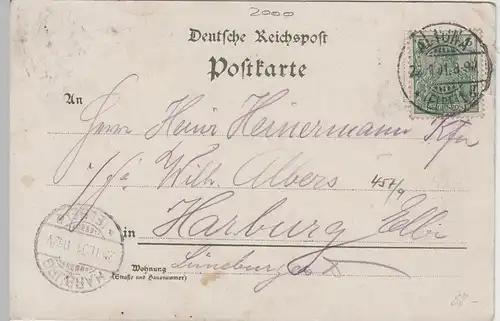 2000
Deutsche Reichspost
Postkarte
An
Herrn Heinr Heinermann Kfm
i/fa. Wilh. Albers 457/9
in Harburg Elbe
Wohnung
(Straße und Hausnummer)
HARBURG
ELBE